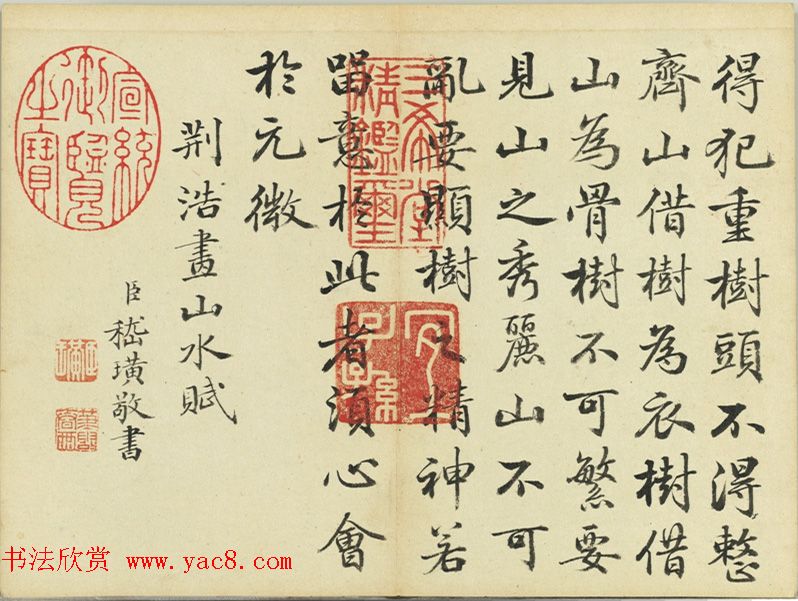 得犯重樹頭不得整
齊山借樹為衣樹借
山為骨樹不可繁要
見山之秀麗山不可
亂要顯樹之精神若
留意於此者須心會
於元微
荆浩畫山水賦
臣嵇璜敬書
宣統御覽之寶
三希堂精鑑璽
宜子孫
书法欣赏 www.yac8.com